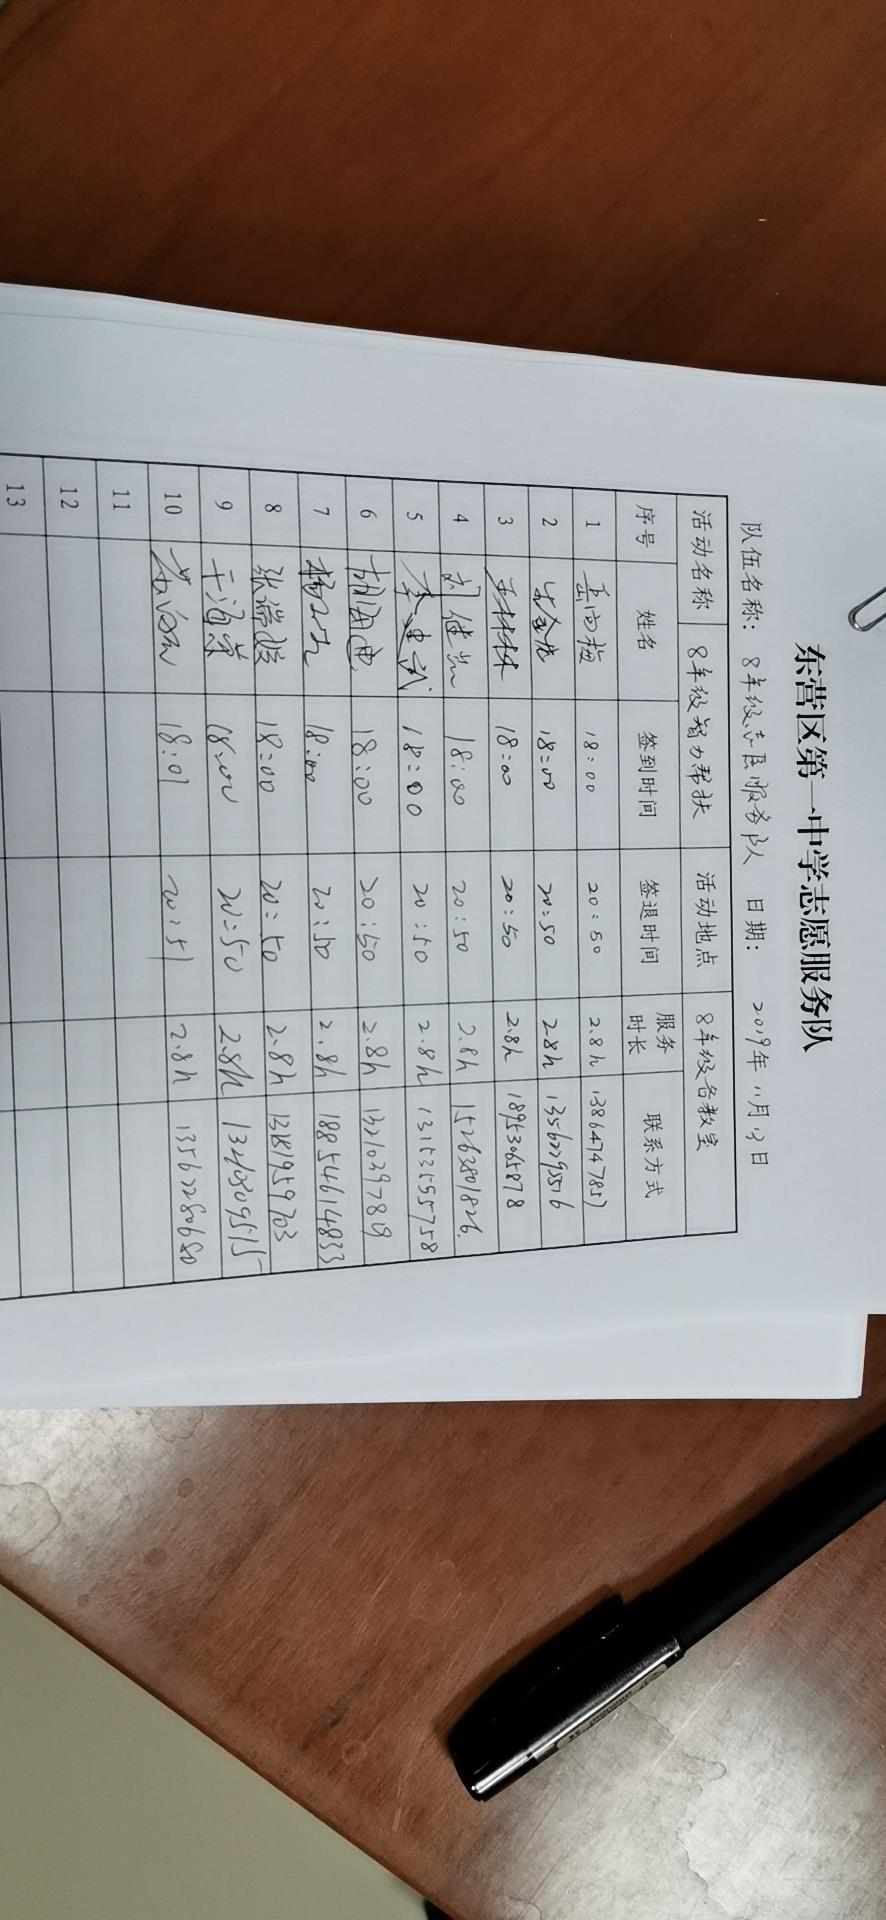 东营区第一中学志愿服务队
队伍名称： 8年级志愿服务队 日期： 2019年11月13日
活动名称 8年级智力帮扶 活动地点 8年级各教室
序号 姓名 签到时间 签退时间 服务时长 联系方式
1 岳向梅 18:00 20:50 2.8h 13864747857
2 18:00 20:50 2.8h
3 18:00 20:50 2.8h 18953065878
4 刘继尝 18:00 20:50 2.8h 15263801826
5 李建武 18:00 20:50 2.8h 13153595758
6 胡海迪 18:00 20:50 2.8h 13210397819
7 18:00 20:50 2.8h 18854614833
8 张蓉蓉 18:00 20:50 2.8h 13181959703
9 于海荣 18:00 20:50 2.8h
10 18:01 20:51 2.8h 13562280680
11
12
13